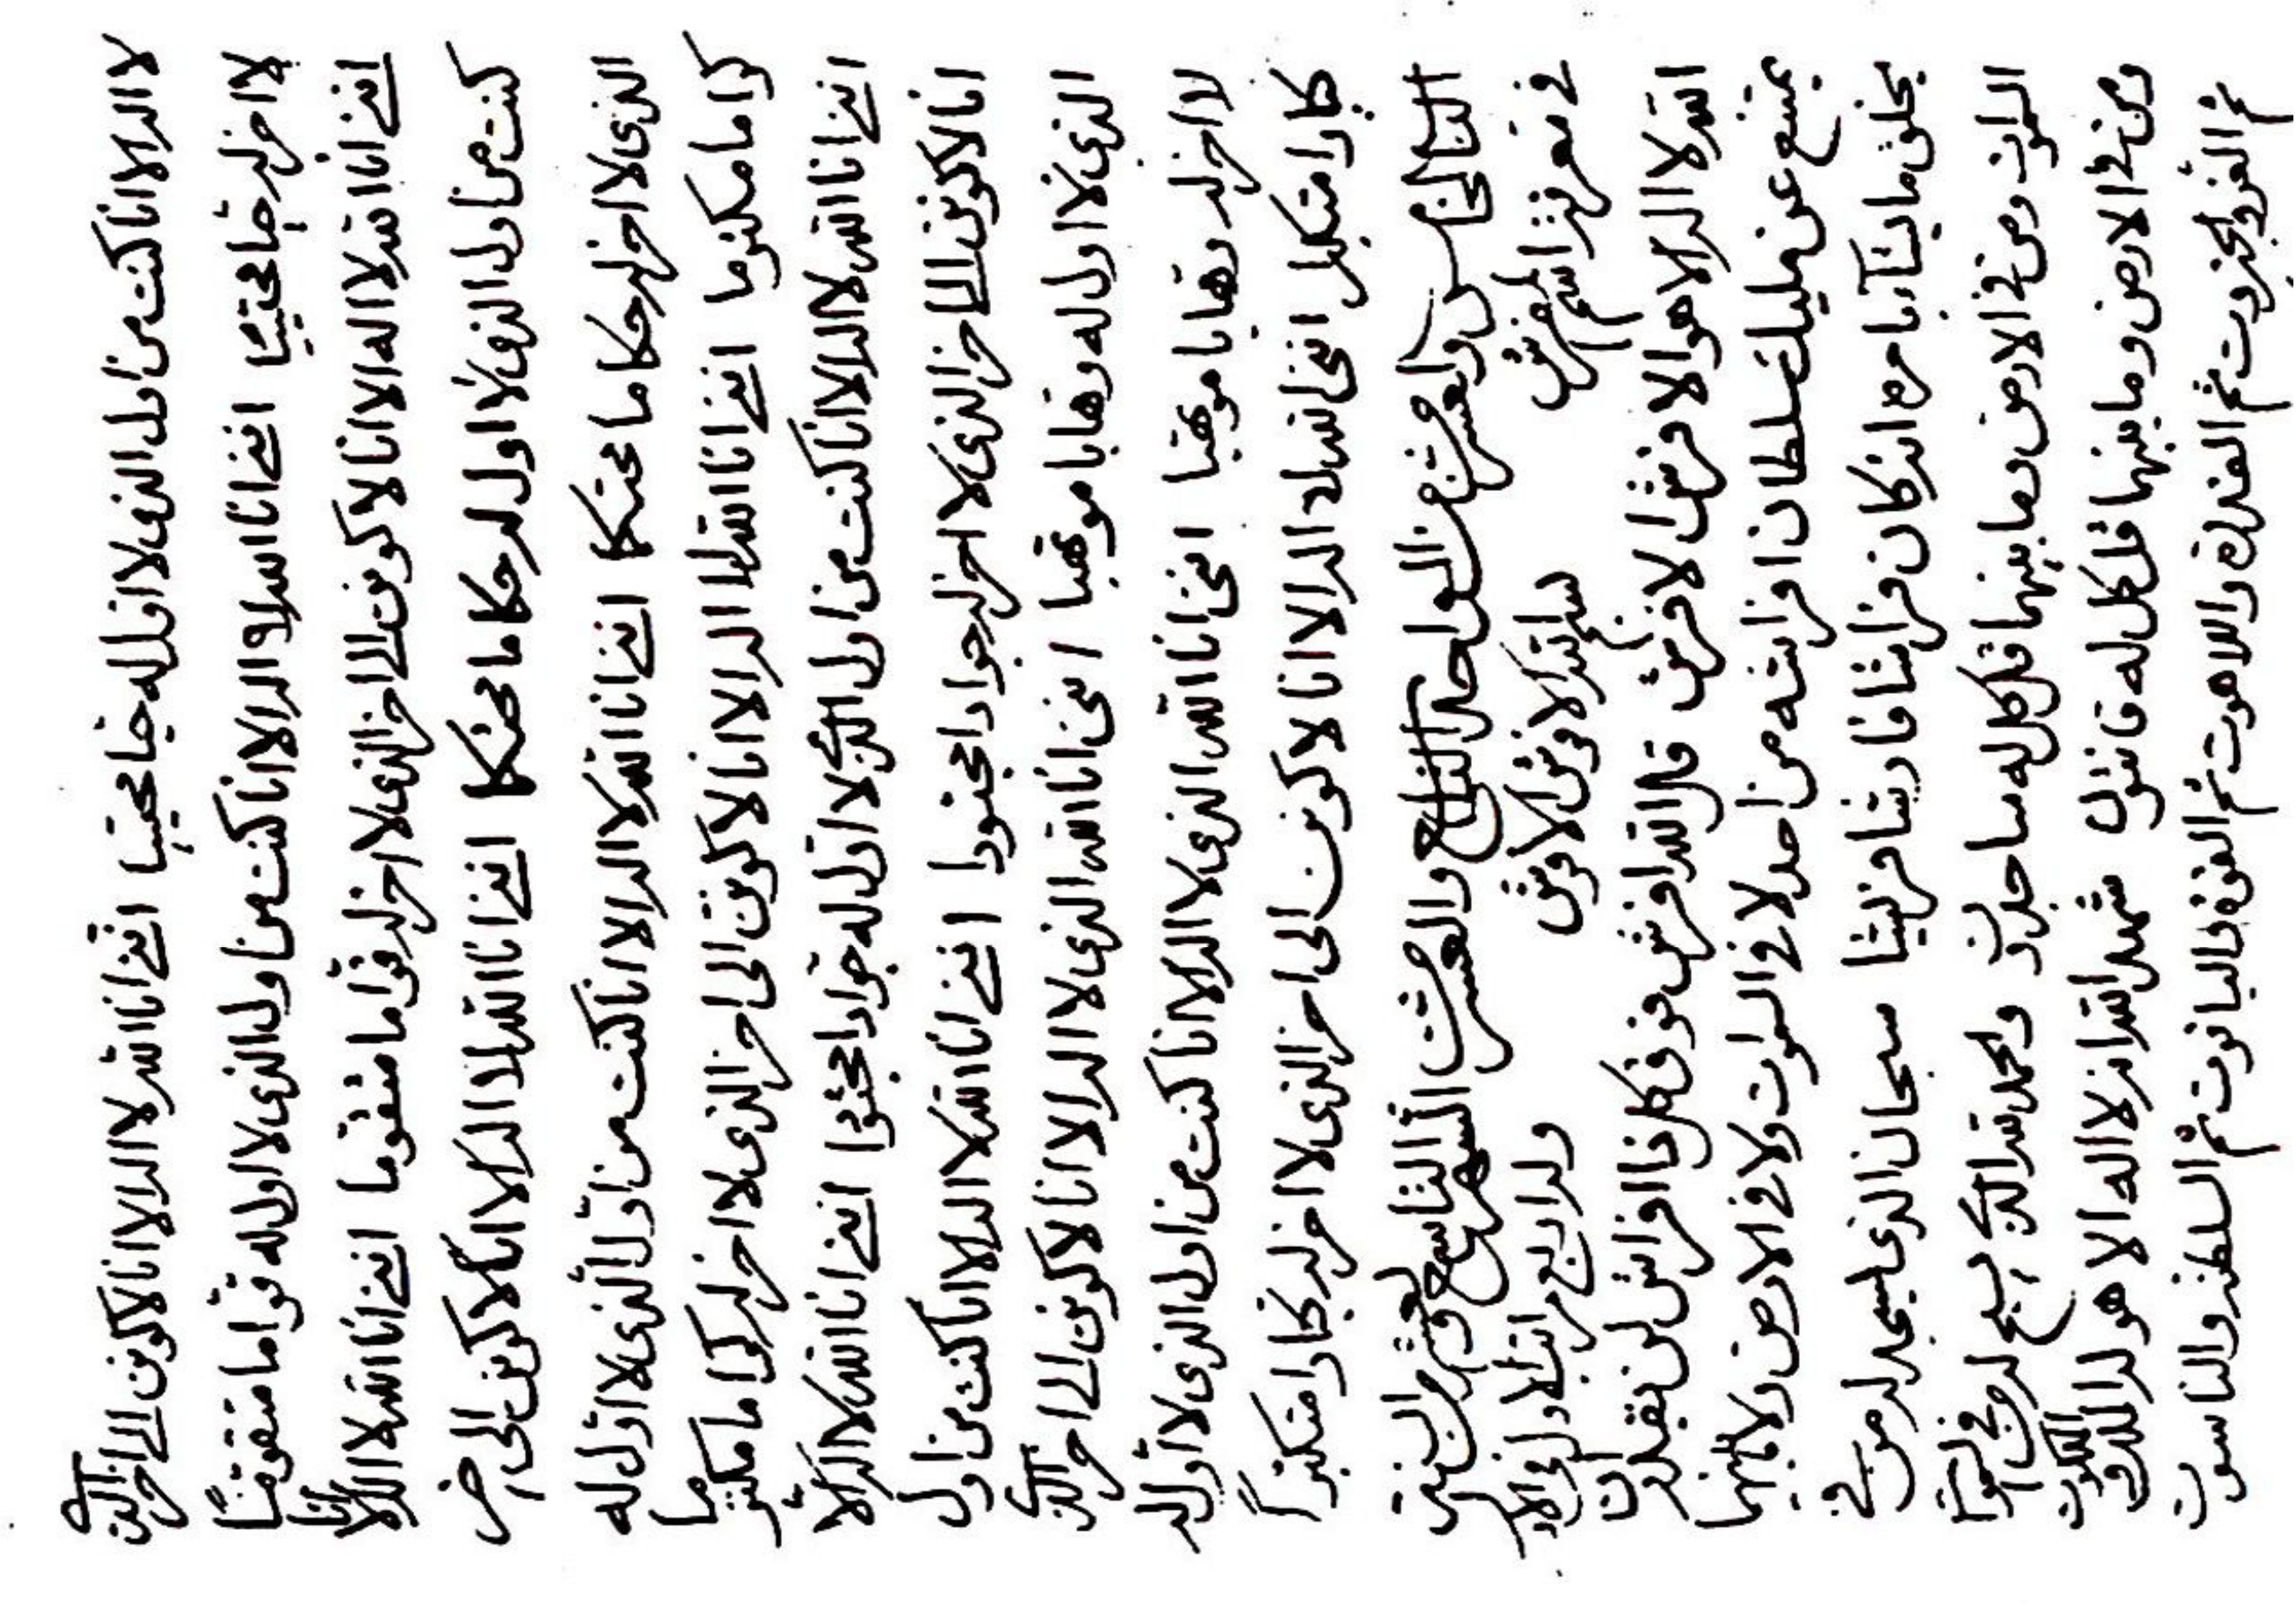 لا اله الا انا كنت من اول الذى لا اول له انني انا الله لا اله الا انا لاكونن الى اخر الذى
لا اخر له انني انا الله لا اله الا انا كنت من اول الذى لا اول له قواما متقوما
انني انا الله لا اله الا انا لاكونن الى اخر الذى لا اخر له قواما متقوما انني انا الله لا اله الا انا
كنت من اول الذى لا اول له حكاما محتكما انني انا الله لا اله الا انا لاكونن الى اخر
الذى لا اخر له حكاما محتكما انني انا الله لا اله الا انا كنت من اول الذى لا اول له
كراما مكترما انني انا الله لا اله الا انا لاكونن الى اخر الذى لا اخر له كراما مكترما
انني انا الله لا اله الا انا كنت من اول الذى لا اول له جوادا مجتودا انني انا الله لا اله الا
انا لاكونن الى اخر الذى لا اخر له جوادا مجتودا انني انا الله لا اله الا انا كنت من اول
الذى لا اول له وهابا موتهبا انني انا الله الذى لا اله الا انا لاكونن الى اخر الذى
لا اخر له وهابا موتهبا انني انا الله الذى لا اله الا انا كنت من اول الذى لا اول له
كبارا متكبرا انني انا الله لا اله الا انا لاكونن الى اخر الذى لا اخر له كبارا متكبرا
الباب الخامس والعشر من الواحد التاسع والعشر من الشهر التاسع عشر من السنين
في معرفة اسم الفرش بسم الله الافرش الافرش وله اربع مراتب الاول في الاول
الله لا اله الا هو الافرش الافرش قل الله افرش فوق كل ذا افراش لن يقدر ان
يمتنع عن مليك سلطان افراشه من احد لا في السموات ولا في الارض ولا ما بينهما
يخلق ما يشاء بامره انه كان فراشا فارشا فريشا سبحان الذى يسجد له من في
السموات ومن في الارض وما بينهما قل كل له ساجدون والحمد لله الذى يسبح له من في السموات
ومن في الارض وما بينهما قل كل له قانتون شهد الله انه لا اله الا هو له الملك والملكوت
ثم العز والجبروت ثم القدرة واللاهوت ثم القوة والياقوت ثم السلطنة والناسوت